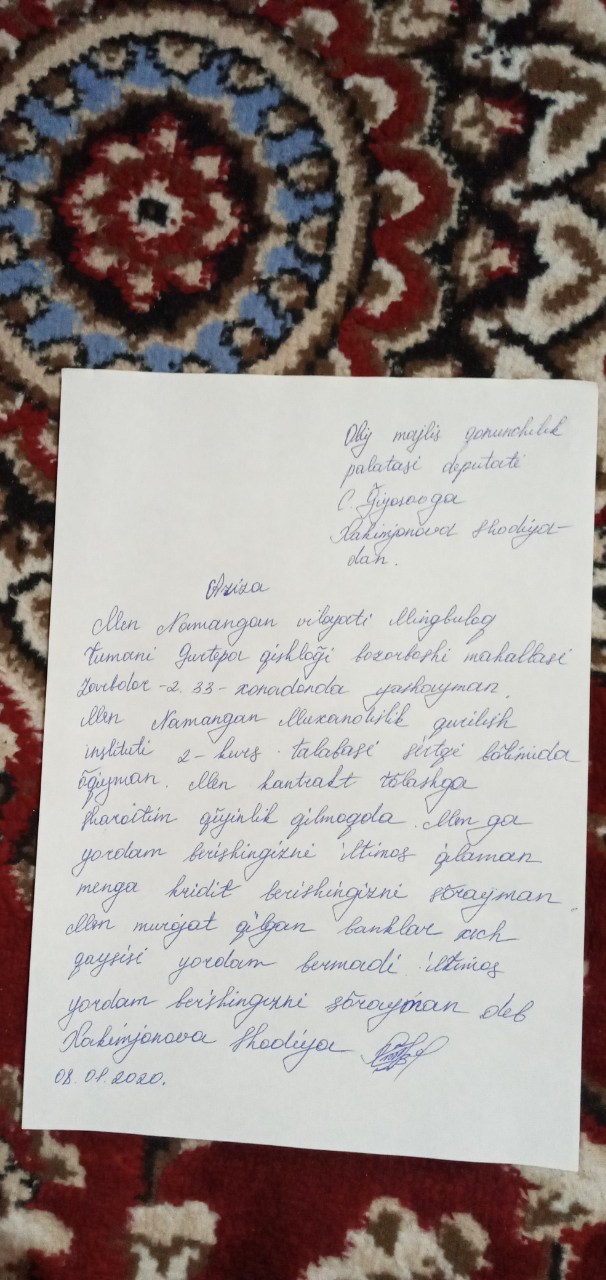 Oliy majlis qonunchilik
palatasi deputati
C. Ğiyosovga
Xakimjonova Shodiya-
dan.
Ariza
Men Namangan viloyati Mingbuloq
tumani Gurtepa qishloği bozorboshi mahallasi
Zarbdor-2. 33-xonadonda yashayman.
Men Namangan Muxandislik qurilish
instituti 2-kurs talabasi sirtqi bõlimida
õqiyman. Men kantrakt tõlashga
sharoitim qiyinlik qilmoqda. Men ga
yordam berishingizni iltimos qilaman
menga kridit berishingizni sõrayman.
Men murojat qilgan banklar xich
qaysisi yordam bermadi. iltimos
yordam berishingizni sõrayman deb
Xakimjonova Shodiya
08.01.2020.